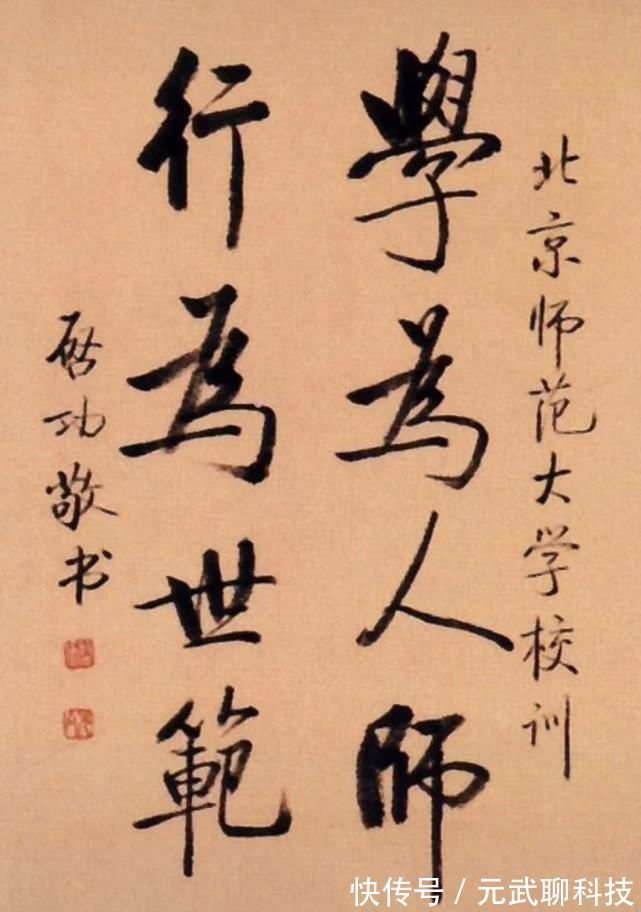 北京师范大学校训
學為人师
行為世範
启功敬书
快传号 / 元武聊科技